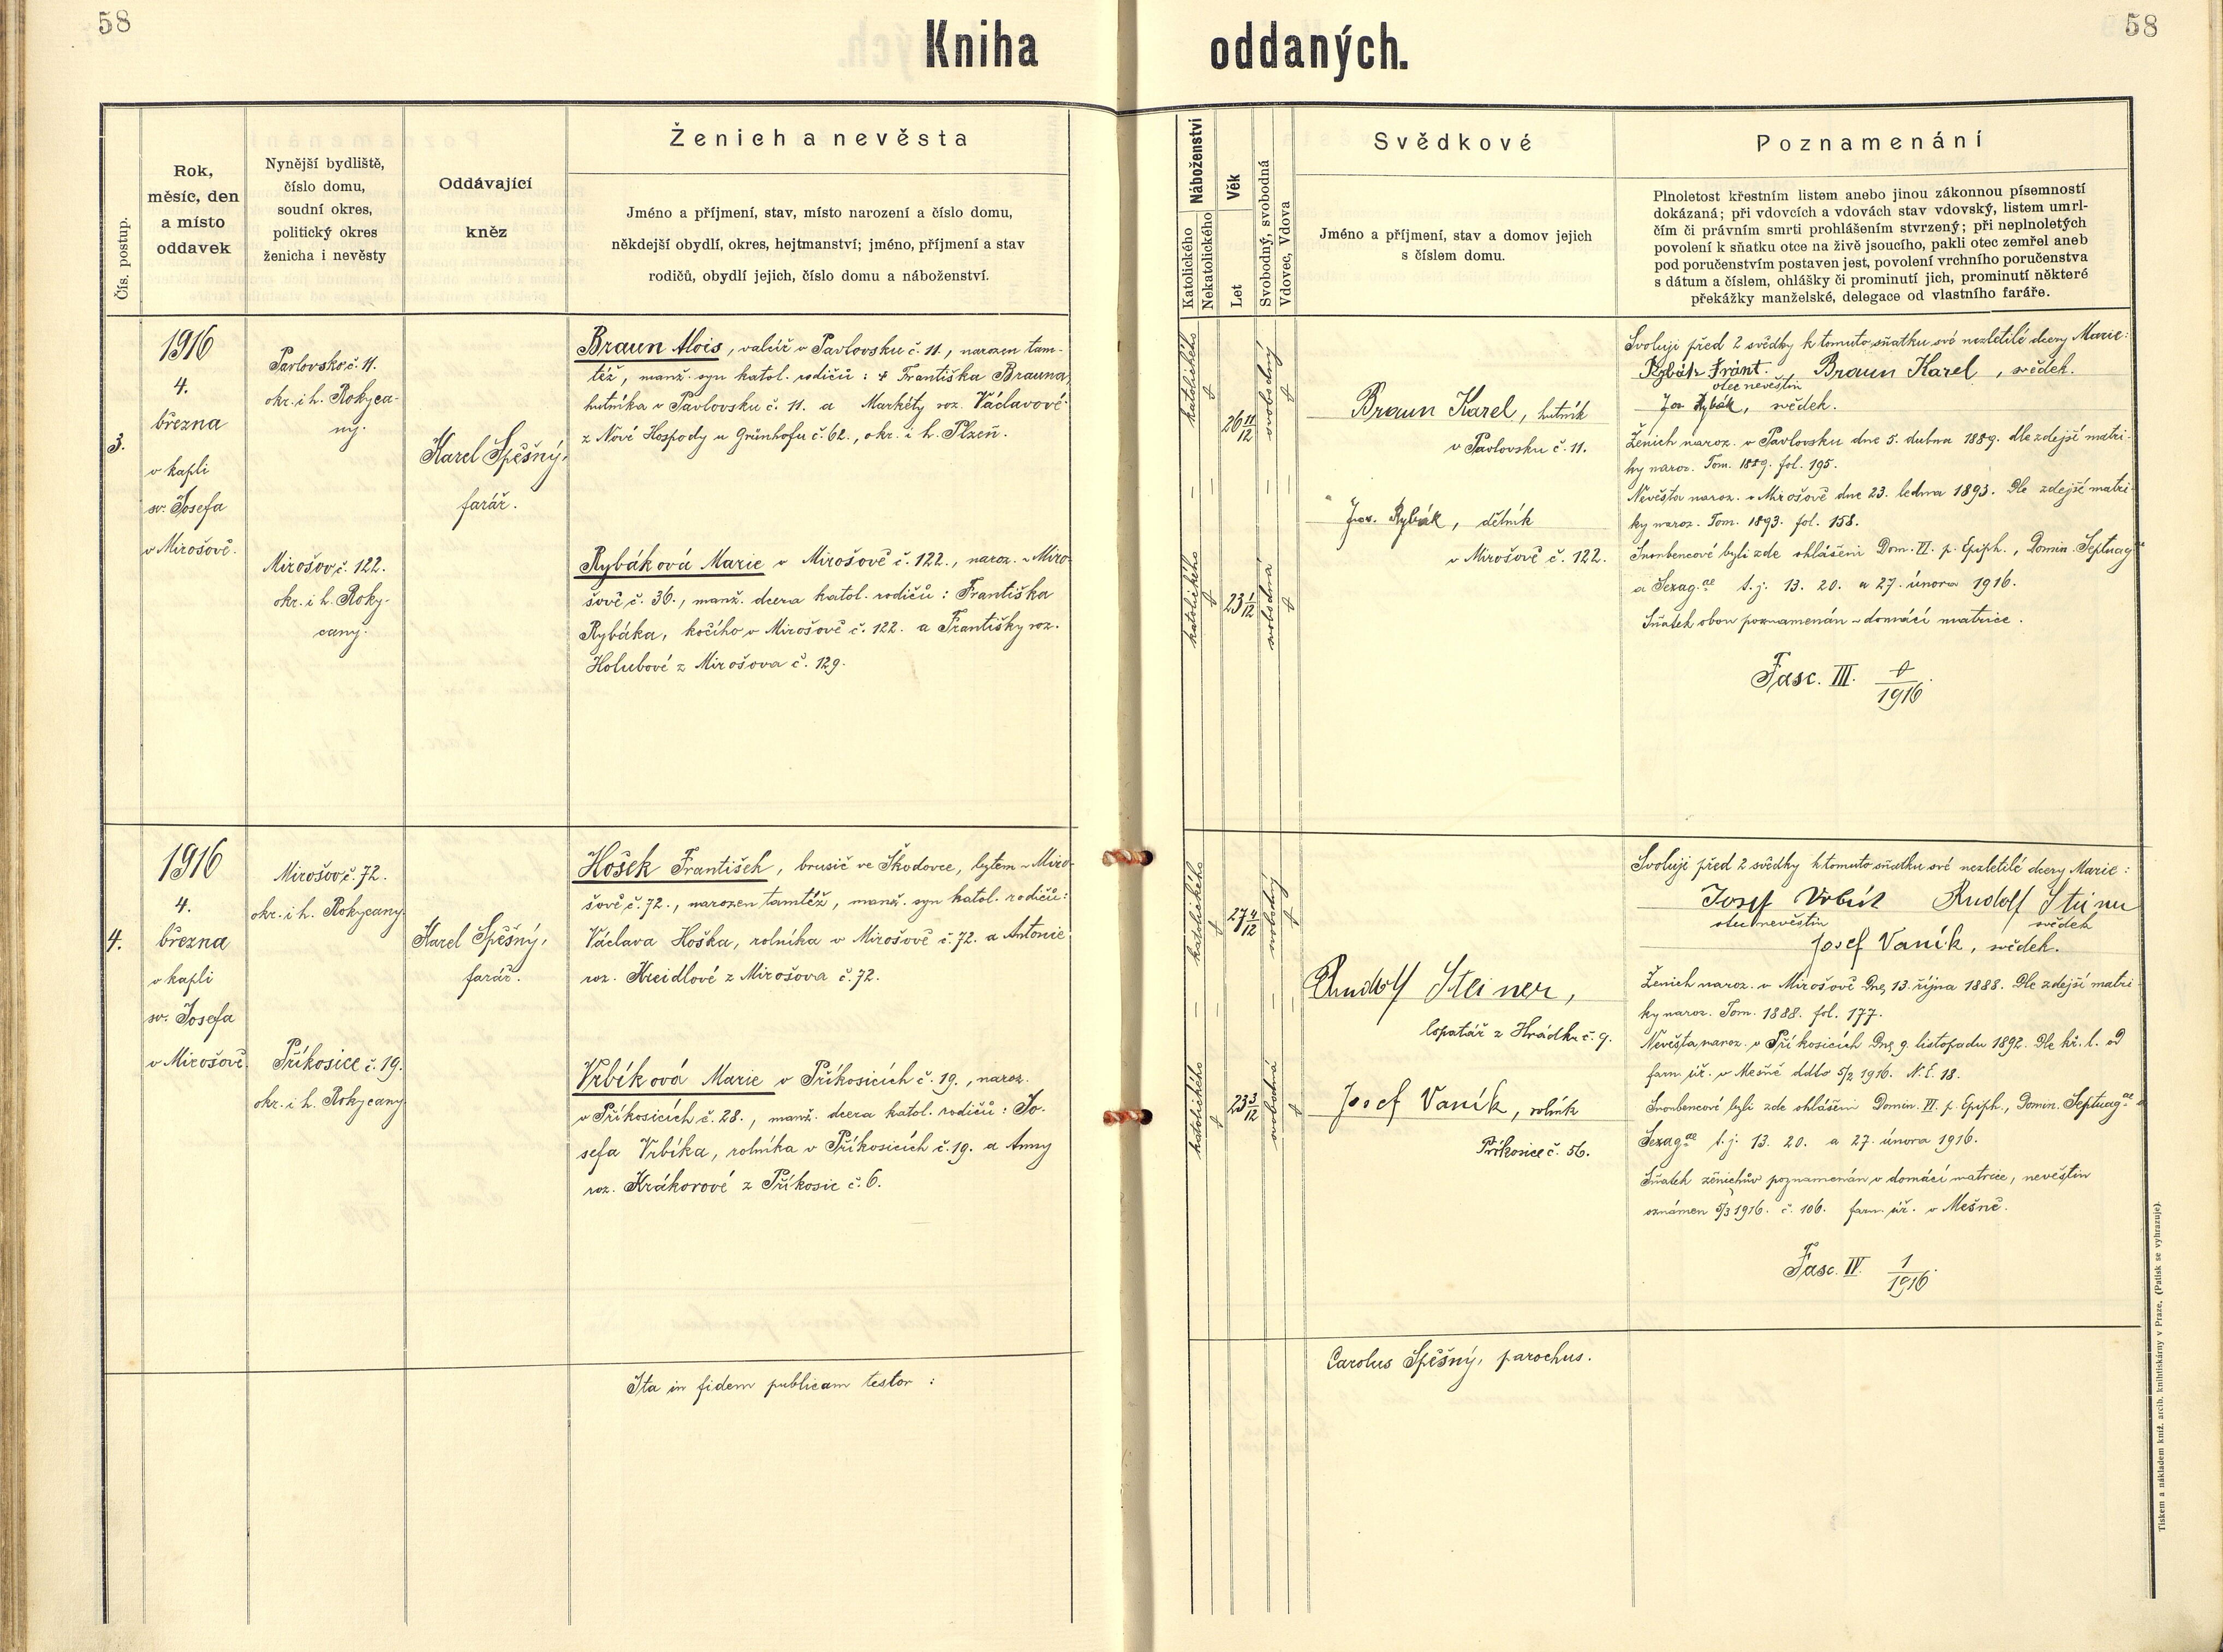 58
58
Kniha oddaných.
Čís. postup.
Rok,
měsíc, den
a místo
oddavek
Nynější bydliště,
číslo domu,
soudní okres,
politický okres
ženicha i nevěsty
Oddávající
kněz
Ženich a nevěsta
Jméno a příjmení, stav, místo narození a číslo domu,
někdejší obydlí, okres, hejtmanství; jméno, příjmení a stav
rodičů, obydlí jejich, číslo domu a náboženství.
Náboženství
Katolického
Nekatolického
Věk
Let
Svobodný, svobodná
Vdovec, Vdova
Svědkové
Jméno a příjmení, stav a domov jejich
s číslem domu.
Poznamenání
Plnoletost křestním listem anebo jinou zákonnou písemností
dokázaná; při vdovcích a vdovách stav vdovský, listem umrl-
čím či právním smrti prohlášením stvrzený; při neplnoletých
povolení k sňatku otce na živě jsoucího, pakli otec zemřel aneb
pod poručenstvím postaven jest, povolení vrchního poručenstva
s dátum a číslem, ohlášky či prominutí jich, prominutí některé
překážky manželské, delegace od vlastního faráře.
3.
1916
4.
března
v kapli
sv. Josefa
v Mirošově.
Pavlovsko č. 11.
okr. i h. Rokyca-
ny.
Mirošov č. 122.
okr. i h. Roky-
cany.
Karel Spěšný,
farář.
Braun Alois, valcíř v Pavlovsku č. 11., narozen tam-
též, manž. syn katol. rodičů: † Františka Brauna,
hutníka v Pavlovsku č. 11. a Markéty roz. Václavové
z Nové Hospody u Grünhofu č. 62., okr. i h. Plzeň.
Rybáková Marie v Mirošově č. 122., naroz. v Miro-
šově č. 36., manž. dcera katol. rodičů: Františka
Rybáka, kočího v Mirošově č. 122. a Františky roz.
Holubové z Mirošova č. 129.
katolického
26 11/12
svobodný
katolického
23 1/12
svobodná
Braun Karel, hutník
v Pavlovsku č. 11.
Jos. Rybák, dělník
v Mirošově č. 122.
Svoluji před 2 svědky k tomuto sňatku své nezletilé dcery Marie:
Rybák Fránt. Braun Karel, svědek.
otec nevěstin
Jos Rybák, svědek.
Ženich naroz. v Pavlovsku dne 5. dubna 1889. dle zdejší matri-
ky naroz. Tom. 1889. fol. 195.
Nevěsta naroz. v Mirošově dne 23. ledna 1893. Dle zdejší matri-
ky naroz. Tom. 1893. fol. 158.
Snoubencové byli zde ohlášeni Dom. VI. p. Epiph., Domin. Septuag
a Sexag.ae t. j. 13. 20. a 27. února 1916.
Sňatek obou poznamenán v domácí matrice.
Fasc. III. /1916
4.
1916
4.
března
v kapli
sv. Josefa
v Mirošově.
Mirošov č. 72.
okr. i h. Rokycany.
Příkosice č. 19.
okr. i h. Rokycany.
Karel Spěšný,
farář.
Hošek František, brusič ve Škodovce, bytem v Miro-
šově č. 72., narozen tamtéž, manž. syn katol. rodičů:
Václava Hoška, rolníka v Mirošově č. 72. a Antonie
roz. Kreidlové z Mirošova č. 72.
Vrbíková Marie v Příkosicích č. 19., naroz.
v Příkosicích č. 28., manž. dcera katol. rodičů: Jo-
sefa Vrbíka, rolníka v Příkosicích č. 19. a Anny
roz. Krákorové z Příkosic č. 6.
katolického
27 4/12
svobodný
katolického
23 3/12
svobodná
Rudolf Steiner,
lopatář z Hrádku č. 9.
Josef Vaník, rolník
Příkosice č. 56.
Svoluji před 2 svědky k tomuto sňatku své nezletilé dcery Marie:
Josef Vrbík Rudolf Steiner
otec nevěstin svědek
Josef Vaník, svědek.
Ženich naroz. v Mirošově dne 13. října 1888. Dle zdejší matri-
ky naroz. Tom. 1888. fol. 177.
Nevěsta naroz. v Příkosicích dne 9. listopadu 1892. Dle kř. l. od
farn. úř. v Mešně ddto 5/2 1916. N. E. 18.
Snoubencové byli zde ohlášeni Domin. VI. p. Epiph., Domin. Septuag.ae a
Sexag.ae t. j. 13. 20. a 27. února 1916.
Sňatek ženichův poznamenán v domácí matrice, nevěstin
oznámen 5/3 1916. č. 106. farn. úř. v Mešně.
Fasc. IV. 1/1916
Ita in fidem publicam testor:
Carolus Spěšný, parochus.
Tiskem a nákladem kníž. arcib. knihtiskárny v Praze. (Patisk se vyhrazuje).